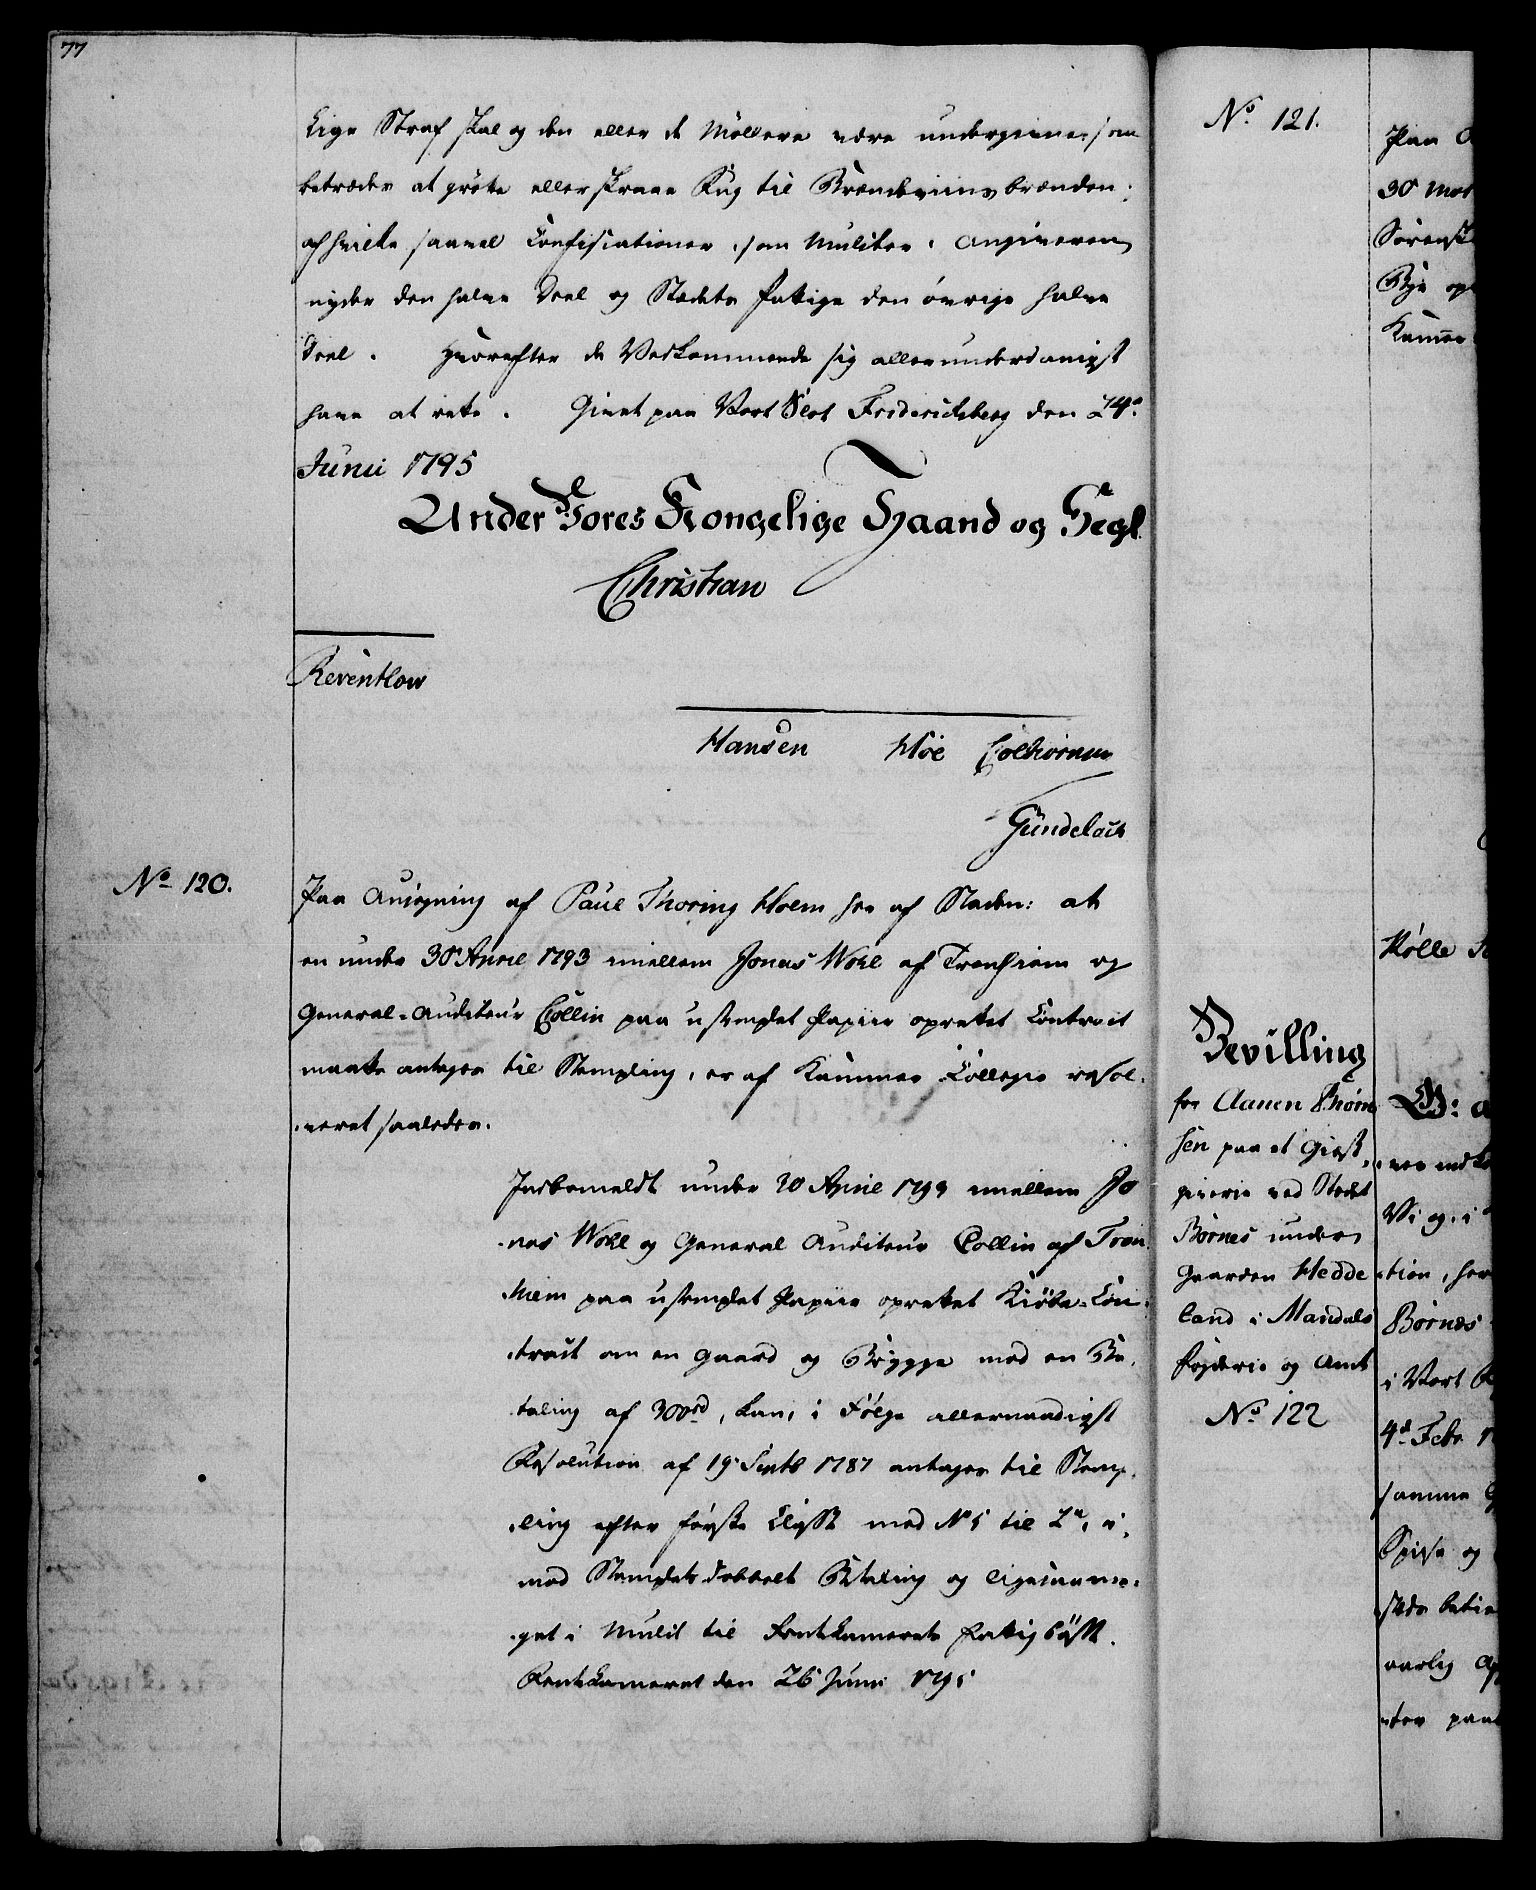 77
Lige Straf skal og den eller de Møllere være undergivne, som
betrædes at grøtte eller skraae Rug til Brændeviins brænden;
af hvilke saavel Confiscationer, som Mulcter, Angiveren
nyder den halve Deel og Stædets Fattige den øvrige halve
Deel. Hvorefter de Vedkommende sig allerunderdanigst
have at rette. Givet paa Vort Slot Friderichsberg den 24de
Junii 1795
Under Vores Kongelige Haand og Segl.
Christian
Reventlow
Hansen Høe Colbiørnsen
Gündelach
No 120.
Paa Ansøgning af Paul Thoring Holm her af Staden: at
en under 30 April 1793 imellem Jonas Wohl af Tronhiem og
General-Auditeur Collin paa ustemplet Papiir oprettet Contract
maatte antages til Stempling, er af Kammer-Collegio resol-
veret saaledes.
Indbemeldte under 30 April 1793 imellem Jo
nas Wohl og General Auditeur Collin af Tron
hiem paa ustemplet Papiir oprettet Kiøbe-Con-
tract om en Gaard og Brygge med en Be-
taling af 300 rd, kan, i Følge allernaadigst
Resolution af 19 Septb 1787 antages til Stemp-
ling efter første Classe med No 5 til
mod Stemplets dobbelt Betaling og ligesaame-
get i Mulct til Rentekamerets Fattigbøsse.
Rentekameret den 26 Junii 1795
No 121.
Paa
30
Sørensk
Bye op
Kammer
Bevilling
for Aanen Biørn
sen paa et Giæst
giverie ved Stedet
Børnes under
Gaarden Hedde
land i Mandals
Fogderie og Amt
No 122
Vi og i
tion, her
Børnes
i Vort
4de Febr
samme
Spise og
aarlig